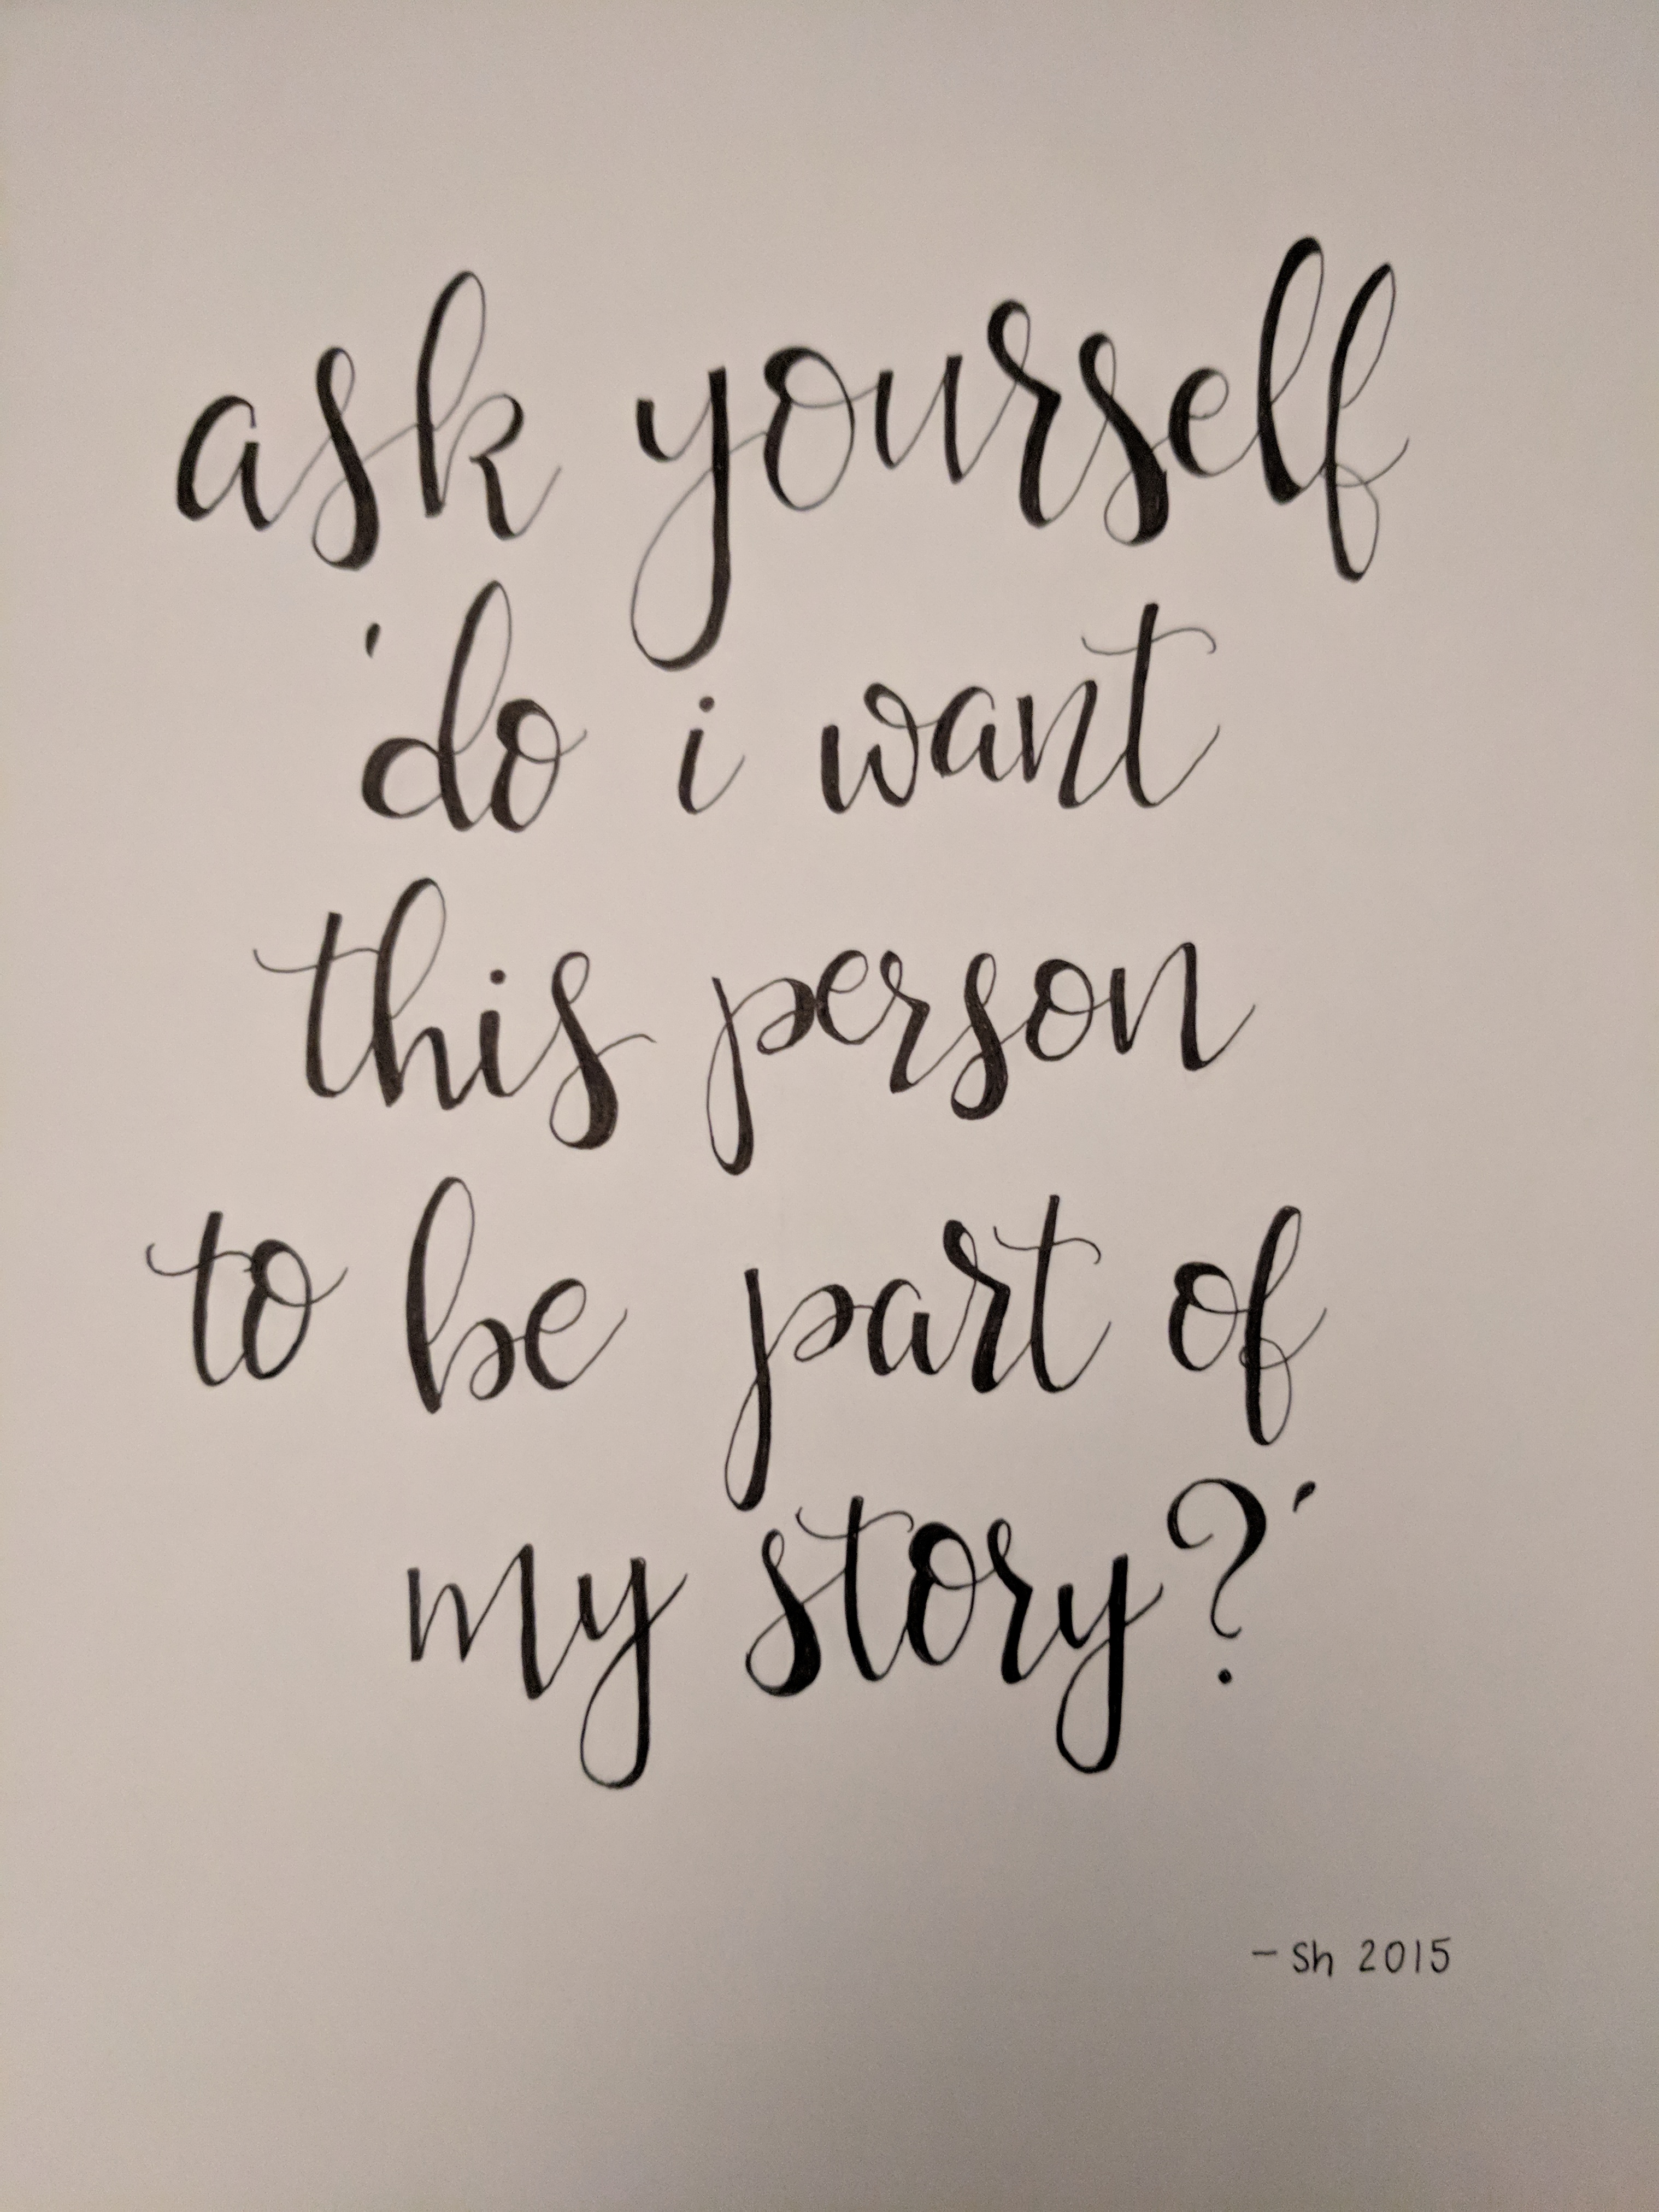 ask yourself
'do i want
this person
to be part of
my story?'
- Sh 2015